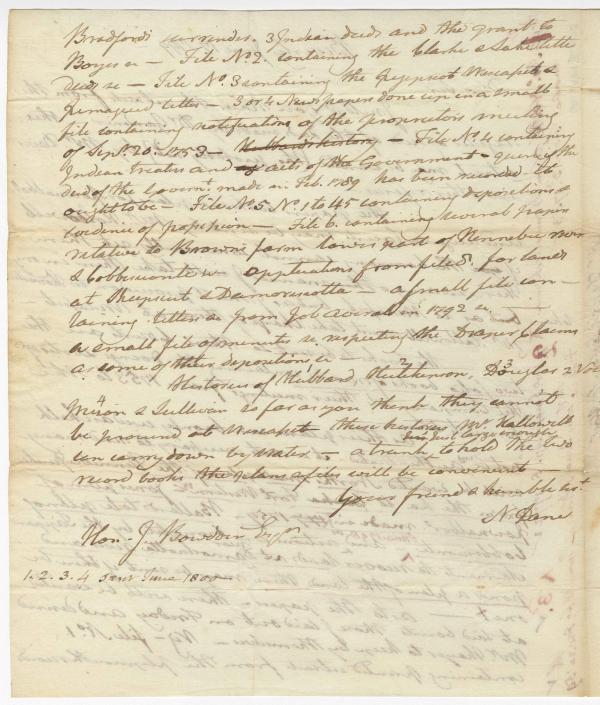 Bradford's surrender. 3 Indian deeds and the grant to
Boyes &c — File No. 2. containing the Clarke & Lake title
deeds &c — File No. 3 containing the Pejepscot Wiscasset &
title — 3 or 4 Newspapers done up in a small
file containing notifications of the proprietors meeting
of Sept. 20. 1753 — Hubbard's history — File No. 4 containing
Indian treaties and acts of the Government — quere if the
deed of the Governt. made in Feb. 1789 has been recorded it
ought to be — File No. 5 No. 1 to 45 containing depositions &
evidence of possession — File 6. containing several papers
relative to Browns farm lower part of Kennebec river
& Cobbiseconte &c — applications from file 8. for lands
at Sheepscut & Damariscotta — a small file con-
taining letters &c from Job Averell in 1792 &c
a small file of minutes &c, respecting the Draper Claims
as some of their depositions &c —
Histories of Hubbard Hutchinson, 2 Douglas 3 2 Vol
Minot & Sullivan so far as you think they cannot
be procured at Wiscasset these histories Mr. Hallowell
can carry down by water — a trunk just large enough to hold the two
record books the plans & files will be convenient
Yours friend & humble sert.
N. Dane
Hon. J. Bowdoin Esqr.
1. 2. 3. 4 Sent June 1800 —